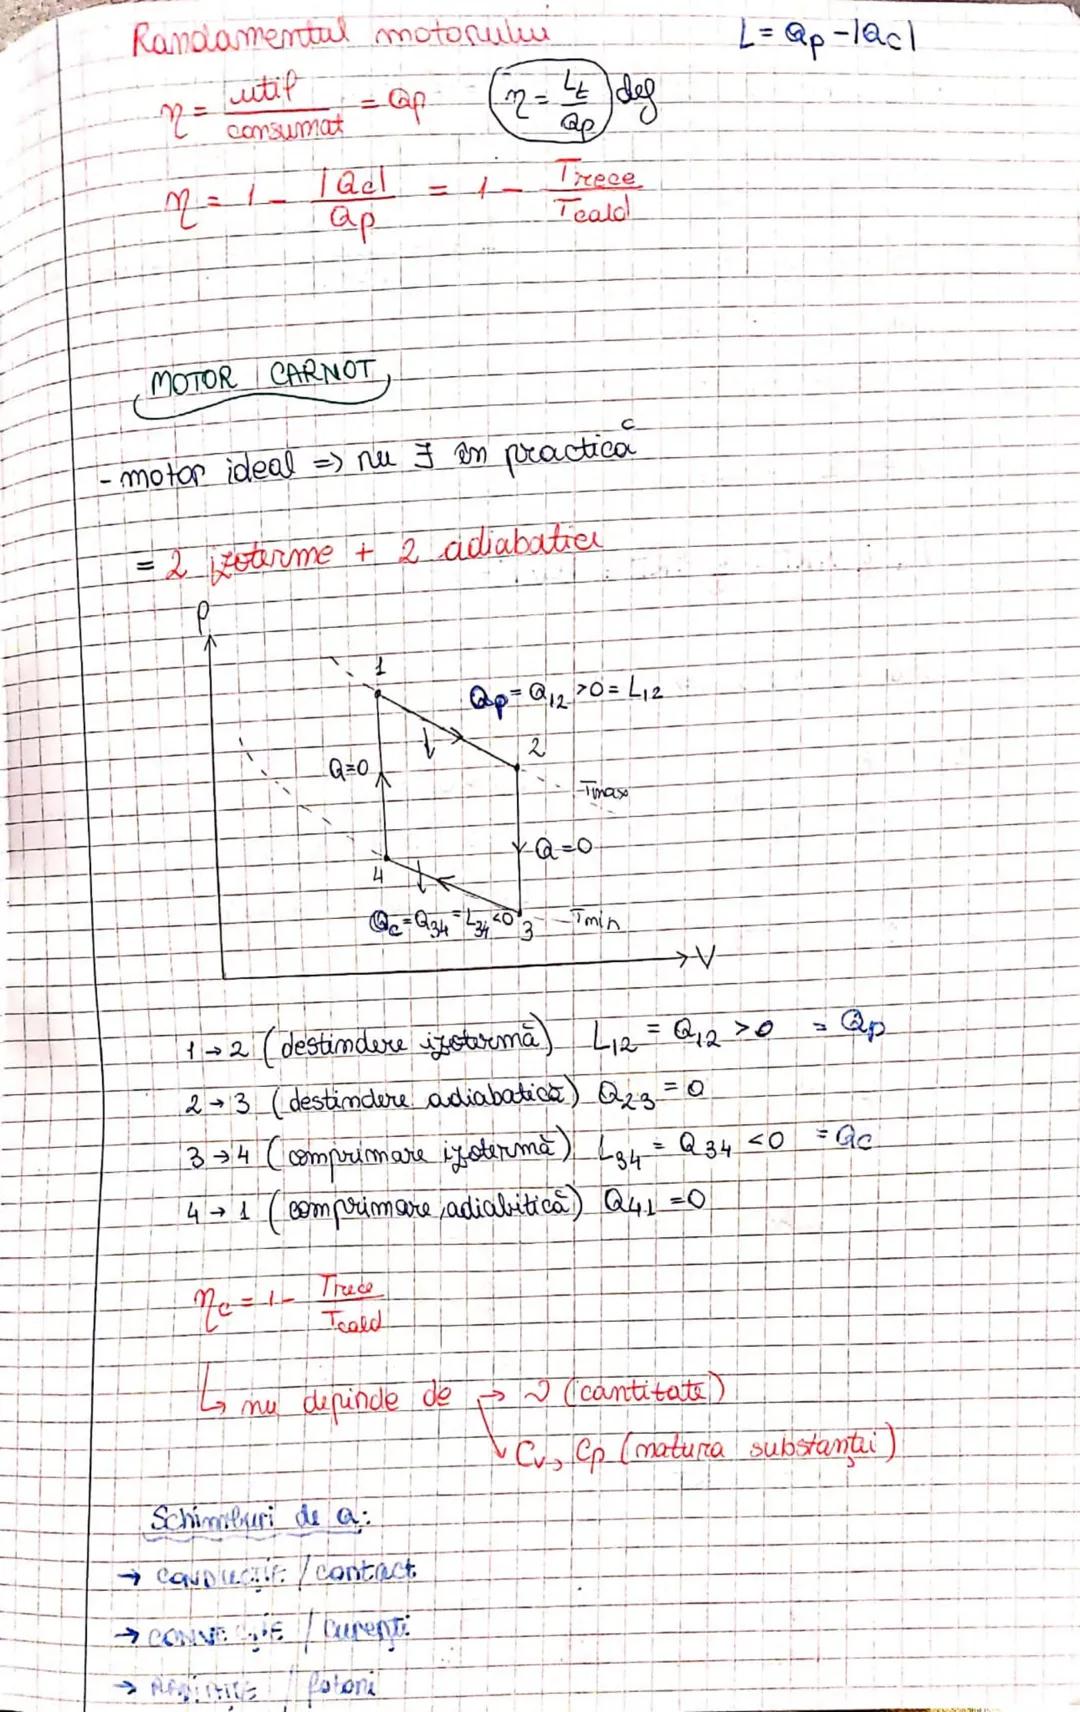 Randamentul motorului
L = Qp - |Qc|
η = utif / consumat = Qp
η = Lt / Qp def
η = 1 - |Qc| / Qp = 1 - Trece / Tcald
MOTOR CARNOT
- motor ideal => nu ∃ în practică
= 2 izoterme + 2 adiabatice
P
1
Qp = Q12 > 0 = L12
2
Q=0
Tmax
Q=0
4
Qc = Q34 = L34 < 0
3
Tmin
V
1 → 2 (destindere izotermă) L12 = Q12 > 0 = Qp
2 → 3 (destindere adiabatică) Q23 = 0
3 → 4 (comprimare izotermă) L34 = Q34 < 0 = Qc
4 → 1 (comprimare adiabitică) Q41 = 0
ηc = 1 - Trece / Tcald
↳ nu depinde de → ν (cantitate)
↘ Cv, Cp (natura substanței)
Schimburi de Q:
→ CONDUCȚIE / contact
→ CONVECȚIE / curenți
→ RADIAȚIE / fotoni